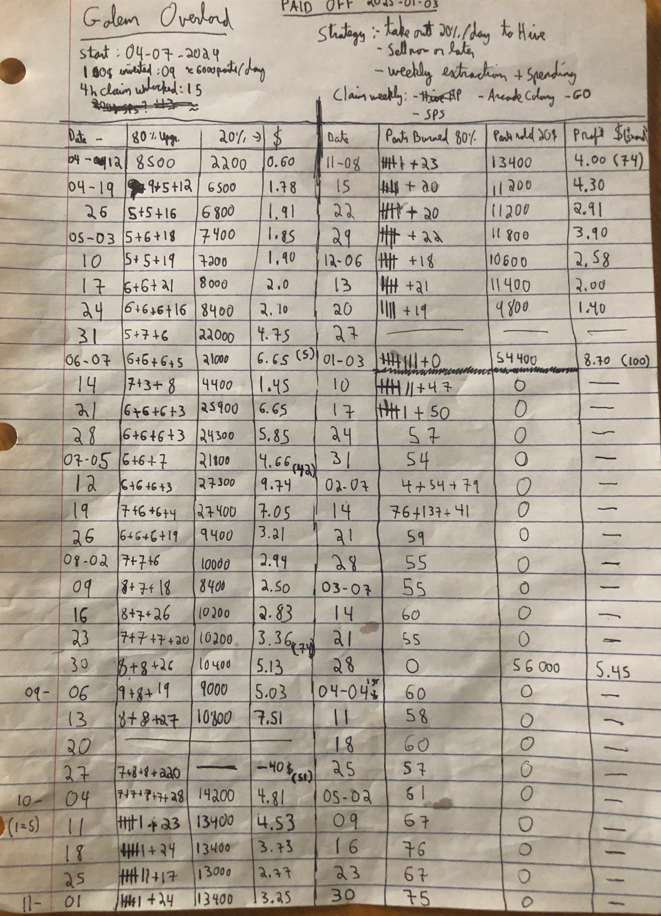 PAID OFF 2025-01-03
Golem Overlord
Strategy :- take out 20%/day to Hive
start : 04-07-2024
- Sell now or later
100$ invested : 09 ≈ 6000parts/day
- weekly extraction + spending
4h claim unlocked : 15
Claim weekly: - HP - Arcade Colony - GO
- SPS
Date - 80% Upgr 20% → $ Date Parts Burned 80% Parts sold 20% Profit $
04-12 8500 2200 0.60 11-08 卌 + 23 13400 4.00 (74)
04-19 4+5+12 6500 1.78 15 卌 + 20 11200 4.30
26 5+5+16 6800 1.91 22 卌 + 20 11200 2.91
05-03 5+6+18 7400 1.85 29 卌 + 22 11800 3.90
10 5+5+19 7200 1.90 12-06 卌 +18 10600 2.58
17 6+6+21 8000 2.0 13 卌 +21 11400 2.00
24 6+6+6+16 8400 2.10 20 |||| +19 9800 1.40
31 5+7+6 22000 4.75 27 — — —
06-07 6+6+6+5 21000 6.65 (5) 01-03 卌||| +0 54400 8.70 (100)
14 7+3+8 4400 1.45 10 卌|| +47 0 —
21 6+6+6+3 25900 6.65 17 卌| + 50 0 —
28 6+6+6+3 24300 5.85 24 57 0 —
07-05 6+6+7 21800 4.66 (42) 31 54 0 —
12 6+6+6+3 27300 9.74 02-07 4+54+79 0 —
19 7+6+6+4 27400 7.05 14 76+137+41 0 —
26 6+6+6+19 9400 3.21 21 59 0 —
08-02 7+7+6 10000 2.94 28 55 0 —
09 8+7+18 8400 2.50 03-07 55 0 —
16 8+7+26 10200 2.83 14 60 0 —
23 7+7+7+20 10200 3.36 (74) 21 55 0 —
30 8+8+26 10400 5.13 28 0 56000 5.45
09- 06 9+8+19 9000 5.03 04-04 60 0 —
13 8+8+27 10800 7.51 11 58 0 —
20 — — 18 60 0 —
27 7+8+8+220 — -40$ (51) 25 57 0 —
10- 04 7+7+7+7+28 14200 4.81 05-02 61 0 —
(1=5) 11 卌| + 23 13400 4.53 09 67 0 —
18 卌| + 24 13400 3.73 16 76 0 —
25 卌|| +17 13000 2.77 23 67 0 —
11- 01 卌| + 24 13400 3.25 30 75 0 —